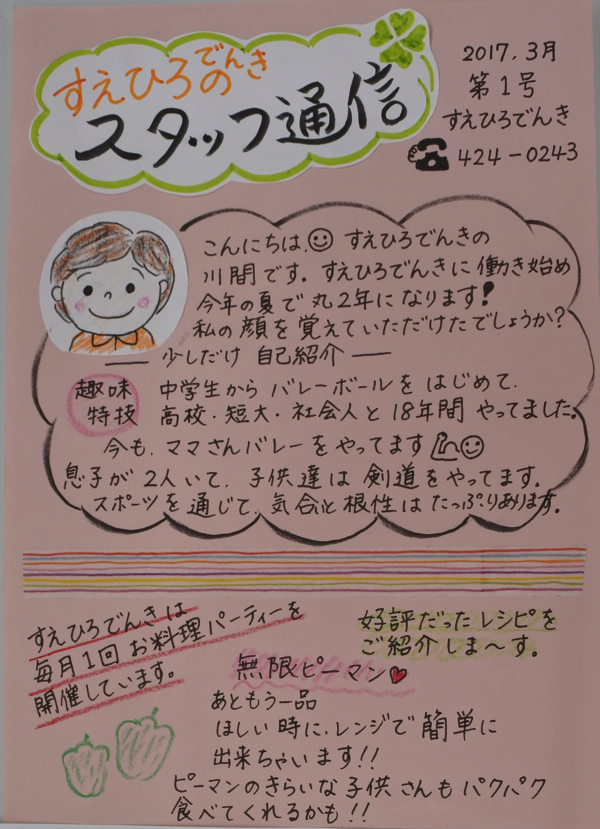 すえひろでんきの
スタッフ通信
2017.3月
第1号
すえひろでんき
☎424-0243
こんにちは。☺すえひろでんきの
川間です。すえひろでんきに働き始め
今年の夏で丸2年になります!
私の顔を覚えていただけたでしょうか?
― 少しだけ 自己紹介 ―
趣味
特技
中学生から バレーボールを はじめて、
高校・短大・社会人と 18年間 やってました。
今も、ママさんバレーをやってます💪☺
息子が 2人いて、子供達は 剣道をやってます。
スポーツを通じて、気合いと根性は たっぷりあります。
すえひろでんきは
毎月1回 お料理パーティーを
開催しています。
好評だったレシピを
ご紹介しま〜す。
無限ピーマン♥
あともう一品
ほしい時に、レンジで簡単に
出来ちゃいます!!
ピーマンのきらいな子供さんもパクパク
食べてくれるかも!!